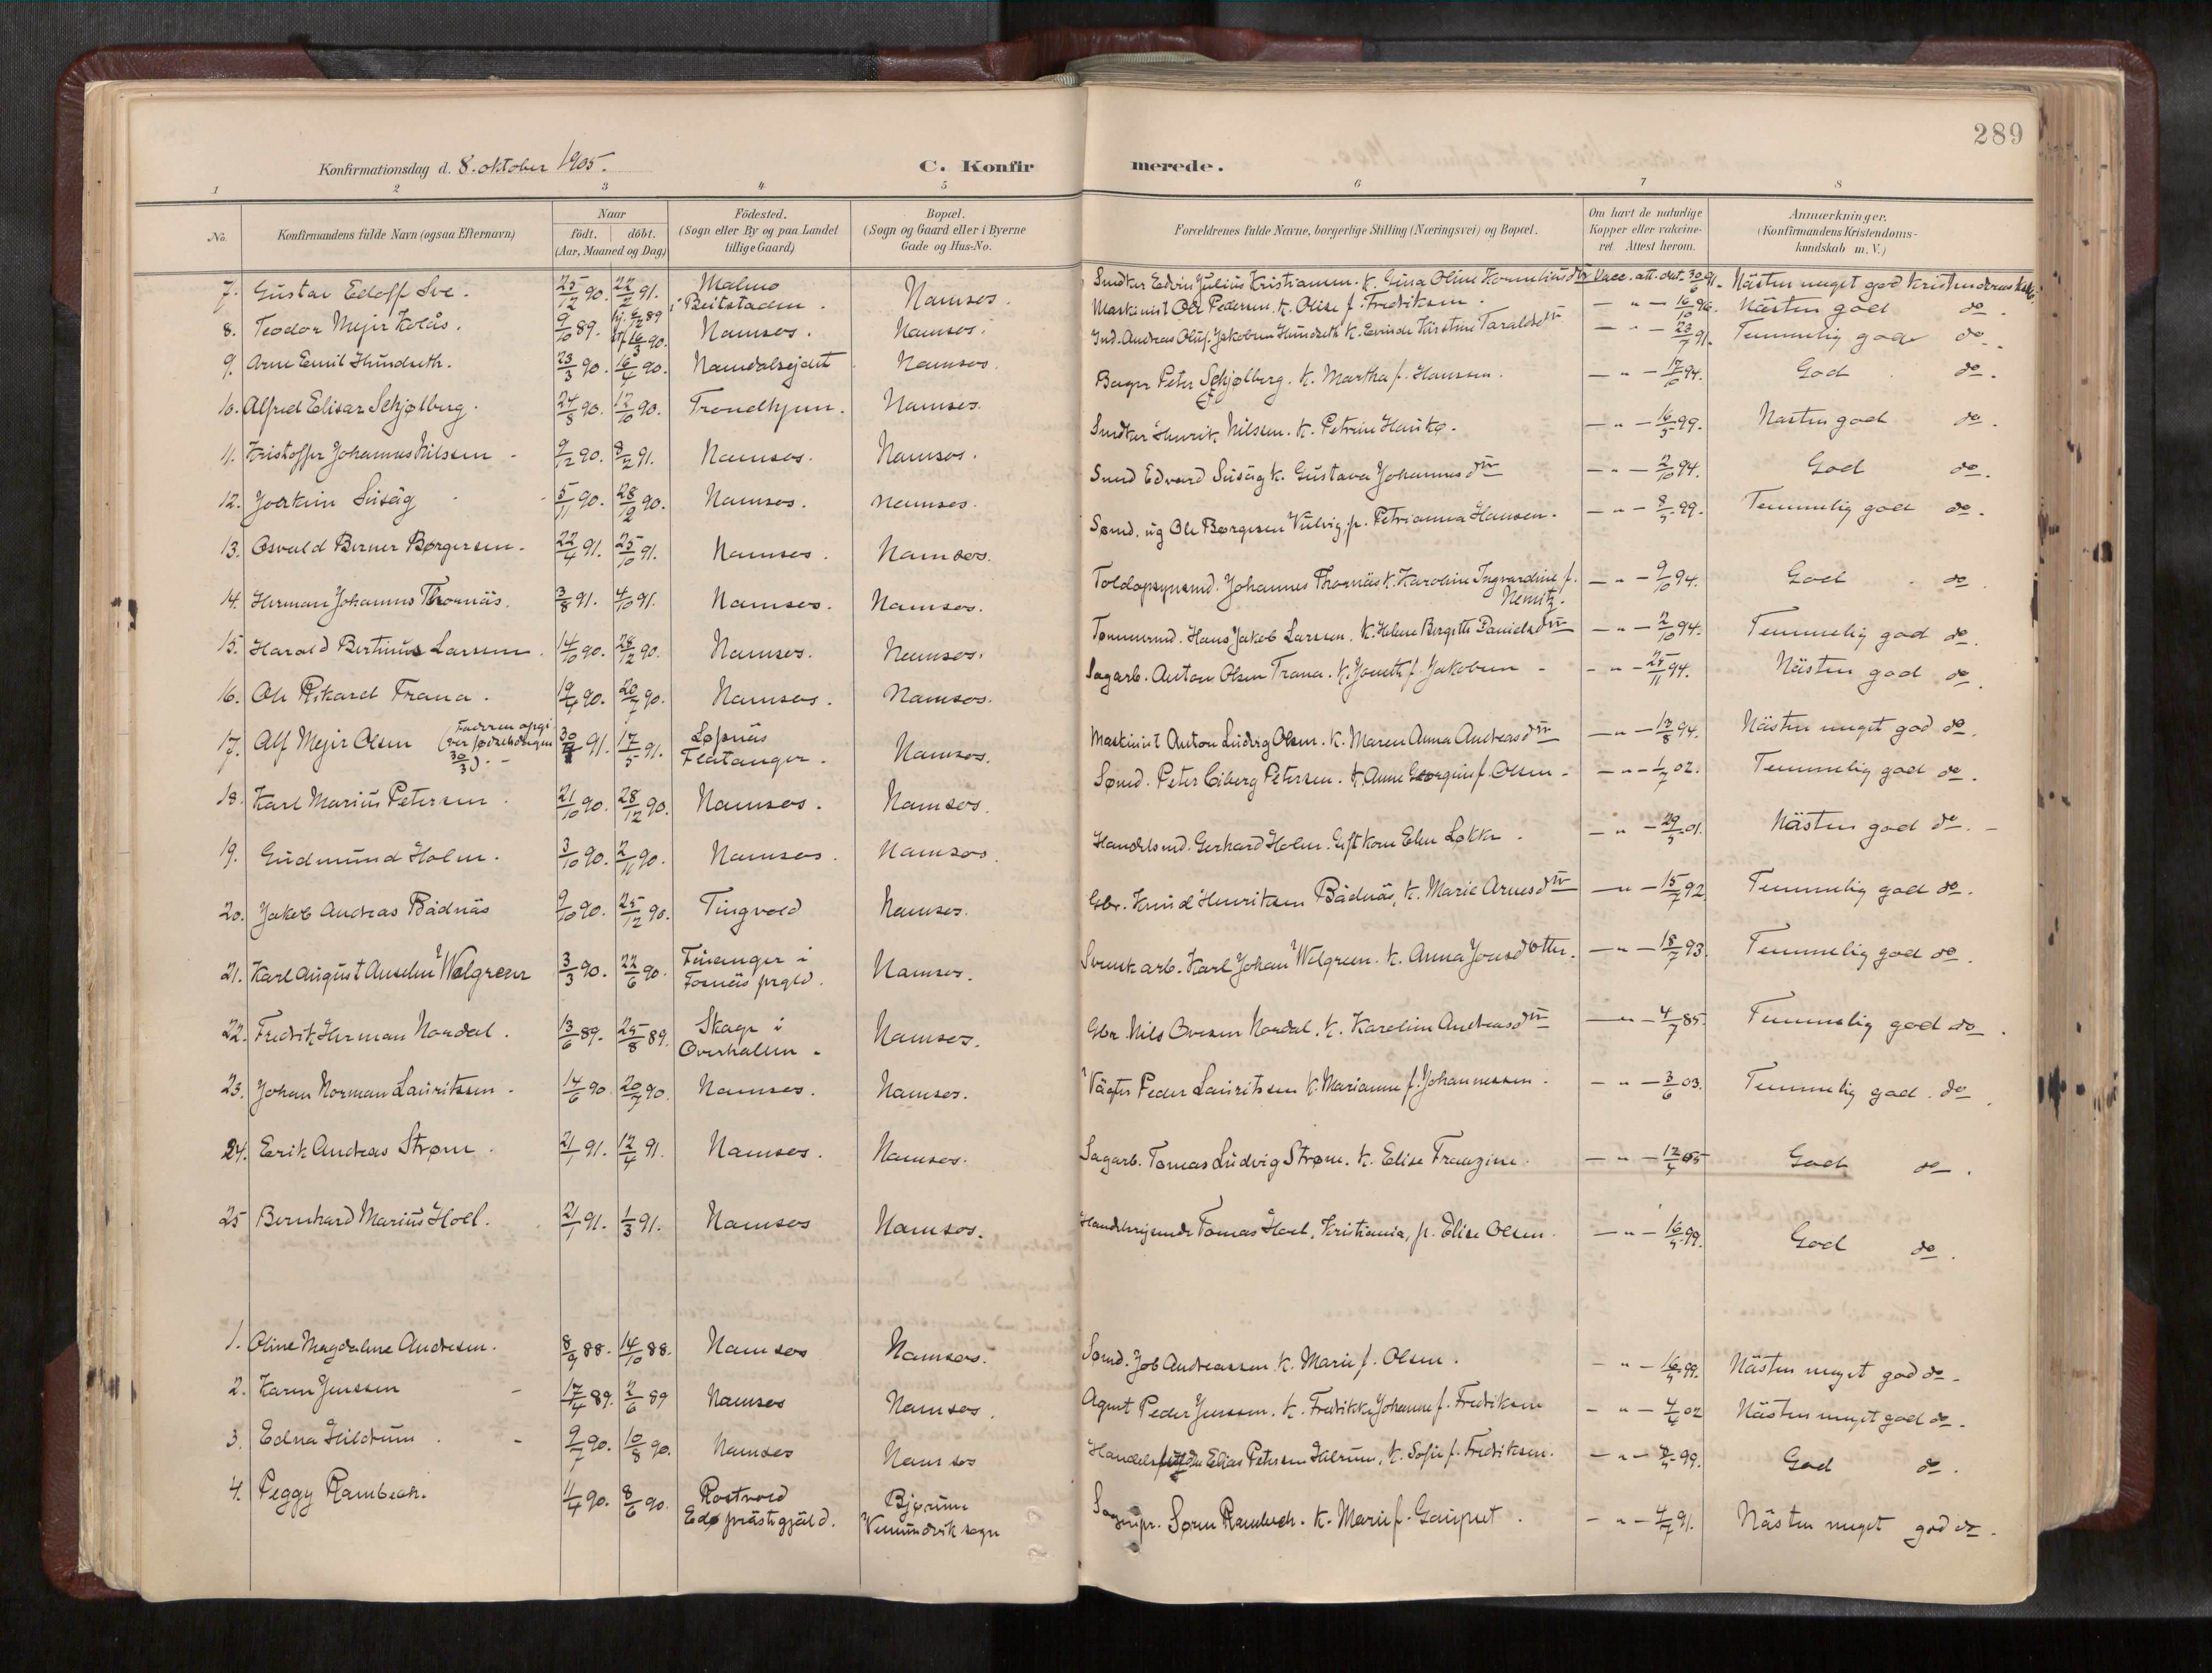 289
Konfirmationsdag d. 8. oktober 1905.
C. Konfirmerede.
1 2 3 4 5 6 7 8
No.
Konfirmandens fulde Navn (ogsaa Efternavn)
Naar
födt. döbt.
(Aar, Maaned og Dag)
Födested.
(Sogn eller By og paa Landet
tillige Gaard)
Bopæl.
(Sogn og Gaard eller i Byerne
Gade og Hus-No.
Forældrenes fulde Navne, borgerlige Stilling (Næringsvei) og Bopæl.
Om havt de naturlige
Kopper eller vakcine-
ret. Attest herom.
Anmærkninger.
(Konfirmandens Kristendoms-
kundskab m. V.)
7. Gustav Edolf Sve. 25/12 90. 22/2 91. Malmo i Beitstaden. Namsos. Smedker Edvin Julius Kristiansen. K. Gina Oline Korneliusdtr Vacc. att. dat. 30/6 91. Nästen meget god Kristendomskdsk.
8. Teodor Mejer Kolås. 9/10 89. hj. 6/12 89 str. 16/3 90. Namsos. Namsos. Maskinist Ole Pedersen. K. Olise f. Fredriksen. — " — 16/10 96. Nästen god do.
9. Arne Emil Hundseth. 23/3 90. 16/4 90. Namdalsejdet. Namsos. Ind. Andreas Oluf Jakobsen Hundseth K. Evinde Kirstine Taraldsdtr — " — 23/7 91. Temmelig god do.
10. Alfred Elisar Schjølberg. 24/8 90. 12/10 90. Trondhjem. Namsos. Bager Peter Schjølberg. K. Martha f. Hanssen. — " — 17/10 94. God do.
11. Kristoffer Johannes Nilssen - 9/12 90. 8/2 91. Namsos. Namsos. Smedker Henrik Nilssen. K. Petrine Hauko. — " — 16/5 99. Nästen god do.
12. Joakim Susåg - 5/11 90. 28/12 90. Namsos. Namsos. Smed Edvard Susåg K. Gustava Johannesdtr — " — 2/10 94. God do.
13. Osvald Berner Børgersen. 22/4 91. 25/10 91. Namsos. Namsos. Sømd. ug Ole Børgesen Vulvig, p. Petrianna Hansen. — " — 8/5 99. Temmelig god do.
14. Herman Johannes Thornäs. 3/8 91. 4/10 91. Namsos. Namsos. Toldopsynsmd. Johannes Thornäs K. Karoline Ingvardine f. Nemitz. — " — 9/10 94. God do.
15. Harald Bertinus Larssen. 14/10 90. 28/12 90. Namsos. Namsos. Tømmermd. Hans Jakob Larssen. K. Helene Birgitte Danielsdtr — " — 2/10 94. Temmelig god do.
16. Ole Rikard Trana. 19/4 90. 20/7 90. Namsos. Namsos. Sagarb. Anton Olsen Trana. K. Jonetta f. Jakobsen - — " — 25/11 94. Nästen god do.
17. Alf Mejer Olsen (Faderen opgiver fødselsdagen 30/3). - 30/4 91. 17/5 91. Løfsnäs Flatanger. Namsos. Maskinist Anton Ludvig Olsen. K. Maren Anna Andreasdtr — " — 13/8 94. Nästen meget god do.
18. Karl Marius Petersen. 21/10 90. 28/12 90. Namsos. Namsos. Sømd. Peter Ciberg Petersen. K. Anne Georgine f. Olsen - — " — 1/7 02. Temmelig god do.
19. Gudmund Holm. 3/10 90. 2/11 90. Namsos. Namsos. Handelsmd. Gerhard Holm. Gift Kone Elen Løkke. — " — 29/5 01. Nästen god do. -
20. Jakob Andreas Bådnäs 9/10 90. 25/12 90. Tingvold Namsos. Gbr. Knud Henriksen Bådnäs, K. Marie Arnesdtr — " — 15/7 92 Temmelig god do.
21. Karl August Anselm Welgreen 3/3 90. 22/6 90. Finanger i Fosnäs prgld. Namsos. Svensk arb. Karl Johan Welgreen. K. Anna Jonsdotter. — " — 18/7 93. Temmelig god do.
22. Fredrik Herman Nordal. 13/6 89. 25/8 89. Skage i Overhallen. Namsos. Gbr. Nils Ovesen Nordal. K. Karoline Andreasdtr — " — 4/7 85. Temmelig god do.
23. Johan Norman Lauritssen - 14/6 90. 20/7 90. Namsos. Namsos. Vägter Peder Lauritssen K. Marianne f. Johannessen. — " — 3/6 03. Temmelig god. do.
24. Erik Andreas Strøm. 21/1 91. 12/4 91. Namsos. Namsos. Sagarb. Tomas Ludvig Strøm. K. Elise Franzine. — " — 12/4 05 God do.
25 Bernhard Marius Hoel. 21/1 91. 1/3 91. Namsos Namsos. Handelsrejsende Tomas Hoel, Kristiania, p. Elise Olsen. — " — 16/5 99. God do.
1. Oline Magdalene Andresen. 8/9 88. 14/10 88. Namsos Namsos. Sømd. Job Andreassen K. Marie f. Olsen. — " — 16/5 99. Nästen meget god do.
2. Karen Jenssen - 17/4 89. 2/6 89 Namsos Namsos. Agent Peder Jenssen. K. Fredrikke Johanne f. Fredriksen — " — 4/4 02 Nästen meget god do.
3. Edna Hildrum. - 9/7 90. 10/8 90. Namsos Namsos Handels Elias Petersen Hilrum, K. Sofie f. Fredriksen. — " — 2/5 99. God do.
4. Peggy Rambech. 11/4 90. 8/6 90. Rostvold Edø prästegjäld. Bjørum Vemundvik sogn Sageiyer. Søren Rambech. K. Marie f. Gaupset. — " — 4/7 91. Nästen meget god do.